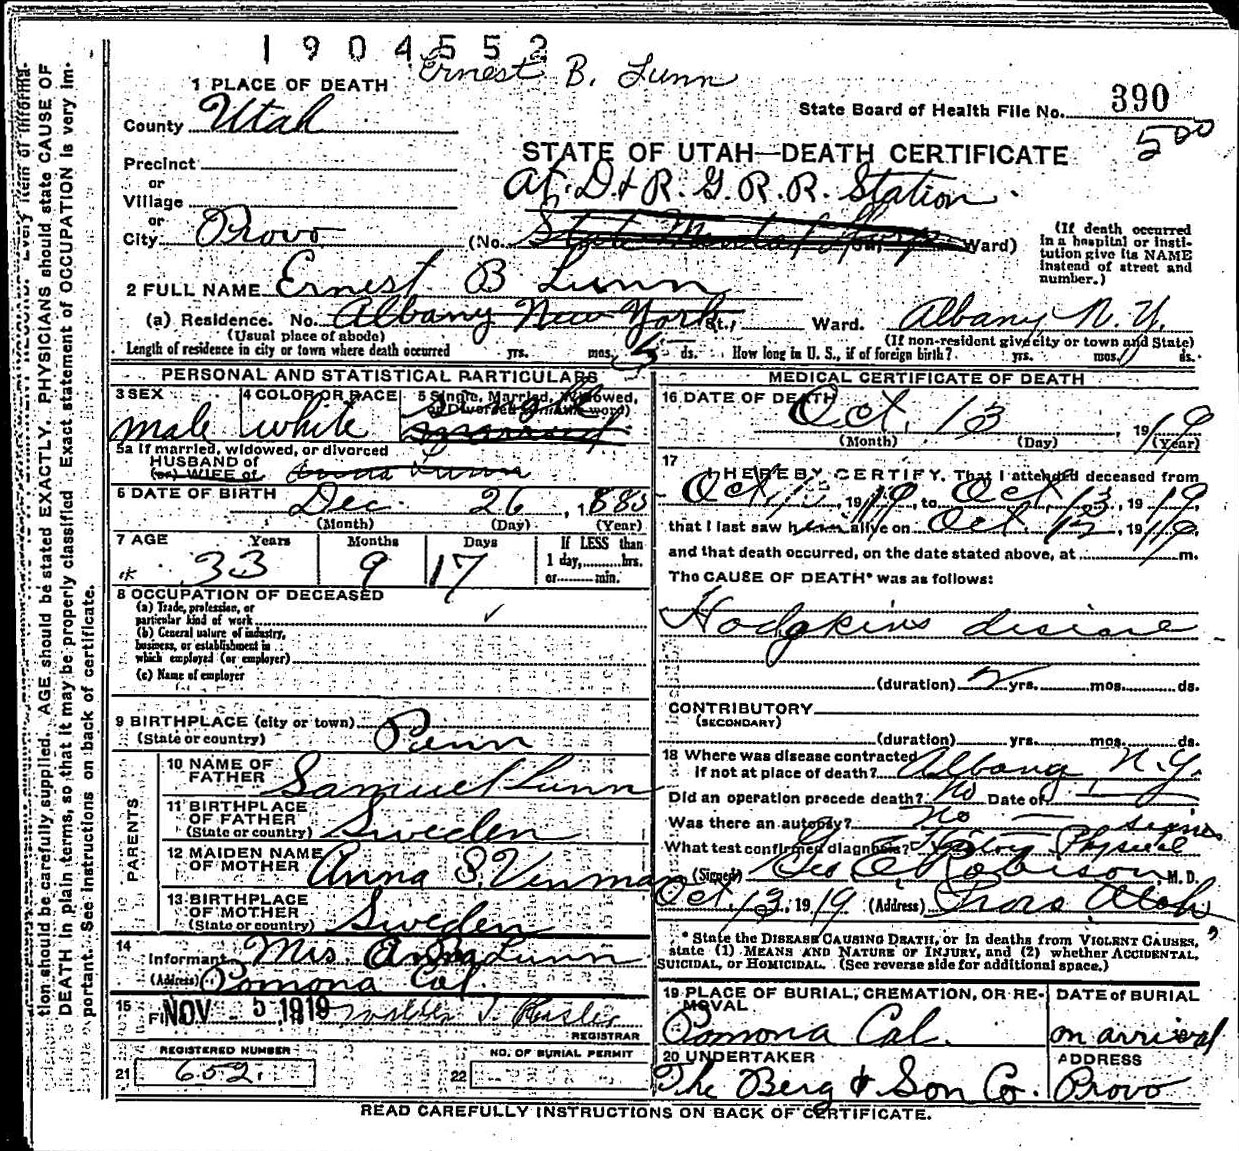 1904552
Ernest B. Lunn
1 PLACE OF DEATH
State Board of Health File No. 390
County Utah
500
STATE OF UTAH—DEATH CERTIFICATE
Precinct
or
Village
or
At D & R. G. R. R. Station
City Provo (No. State Mental Ward)
(If death occurred in a hospital or institution give its NAME instead of street and number.)
2 FULL NAME Ernest B Lunn
(a) Residence. No. Albany New York St., Ward. Albany, N. Y.
(Usual place of abode) (If non-resident give city or town and State)
Length of residence in city or town where death occurred yrs. mos. ds. How long in U. S., if of foreign birth? yrs. mos. ds.
PERSONAL AND STATISTICAL PARTICULARS
3 SEX male
4 COLOR OR RACE white
5 Single, Married, Widowed, or Divorced (write the word) Single married
5a If married, widowed, or divorced
HUSBAND of
(or) WIFE of Lunn
6 DATE OF BIRTH Dec. 26, 1885
(Month) (Day) (Year)
7 AGE Years Months Days If LESS than
33 9 17 1 day, hrs.
or min.
8 OCCUPATION OF DECEASED
(a) Trade, profession, or particular kind of work
(b) General nature of industry, business, or establishment in which employed (or employer)
(c) Name of employer
9 BIRTHPLACE (city or town)
(State or country) Penn
PARENTS
10 NAME OF FATHER Samuel Lunn
11 BIRTHPLACE OF FATHER (State or country) Sweden
12 MAIDEN NAME OF MOTHER Anna S. Vinman
13 BIRTHPLACE OF MOTHER (State or country) Sweden
14 Informant Mrs. Lunn
(Address) Pomona Cal.
15 NOV - 5 1919
REGISTRAR
REGISTERED NUMBER
21 652.
NO. OF BURIAL PERMIT
22
MEDICAL CERTIFICATE OF DEATH
16 DATE OF DEATH Oct. 13, 1919
(Month) (Day) (Year)
17 I HEREBY CERTIFY, That I attended deceased from
Oct. 13, 1919, to Oct. 13, 1919,
that I last saw him alive on Oct. 12, 1919
and that death occurred, on the date stated above, at m.
The CAUSE OF DEATH* was as follows:
Hodgkins disease
(duration) 2 yrs. mos. ds.
CONTRIBUTORY
(SECONDARY)
(duration) yrs. mos. ds.
18 Where was disease contracted
If not at place of death? Albany, N.Y.
Did an operation precede death? No Date of
Was there an autopsy? No
What test confirmed diagnosis? History Physical signs
(Signed) Geo E. Robison, M. D.
Oct 13, 1919 (Address) Provo Utah
* State the DISEASE CAUSING DEATH, or in deaths from VIOLENT CAUSES,
state (1) MEANS AND NATURE OF INJURY, and (2) whether ACCIDENTAL,
SUICIDAL, or HOMICIDAL. (See reverse side for additional space.)
19 PLACE OF BURIAL, CREMATION, OR REMOVAL Pomona Cal.
DATE of BURIAL on arrival
20 UNDERTAKER The Berg & Son Co.
ADDRESS Provo
READ CAREFULLY INSTRUCTIONS ON BACK OF CERTIFICATE.
tion should be carefully supplied. AGE should be stated EXACTLY. PHYSICIANS should state CAUSE OF
DEATH in plain terms, so that it may be properly classified. Exact statement of OCCUPATION is very im-
portant. See instructions on back of certificate.